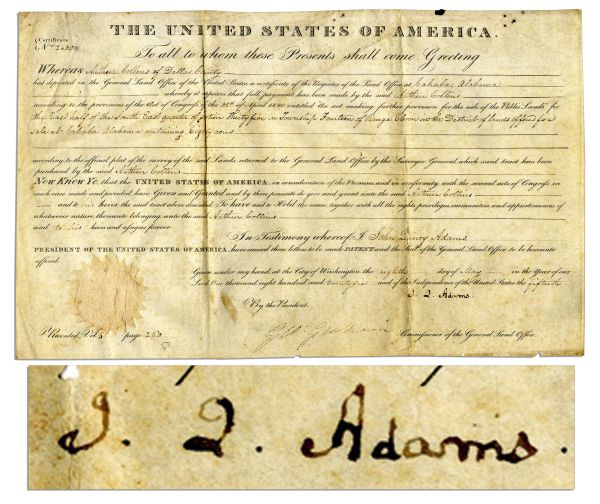 THE UNITED STATES OF AMERICA.
Certificate
To all to whom these Presents shall come Greeting
Whereas Arthur Collins of Dallas County
has deposited in the General Land Office of the United States a certificate of the Register of the Land Office at Cahaba Alabama
whereby it appears that full payment has been made by the said Arthur Collins
according to the provisions of the Act of Congress of the 24th of April 1820 entitled An act making further provision for the sale of the Public Lands for
the East half of the South East quarter of section Thirty five in Township Fourteen of Range Eleven in the District of lands offered for
sale at Cahaba Alabama containing Eighty acres
according to the official plat of the survey of the said Lands returned to the General Land Office by the Surveyor General which said tract has been
purchased by the said Arthur Collins
NOW KNOW YE, that the UNITED STATES OF AMERICA, in consideration of the Premises and in conformity with the several acts of Congress in
such case made and provided have Given and Granted and by these presents do give and grant unto the said Arthur Collins
and to his heirs the said tract above described To have and to Hold the same together with all the rights privileges immunities and appurtenances of
whatsoever nature thereunto belonging unto the said Arthur Collins
and to his heirs and assigns forever
In Testimony whereof I John Quincy Adams
PRESIDENT OF THE UNITED STATES OF AMERICA, have caused these letters to be made PATENT and the Seal of the General Land Office to be hereunto
affixed.
Given under my hand, at the City of Washington the eighth day of May in the Year of our
Lord One thousand eight hundred and and of the Independence of the United States the fiftieth
J. Q. Adams
By the President
Commissioner of the General Land Office.
Recorded Vol page 263
J. Q. Adams.